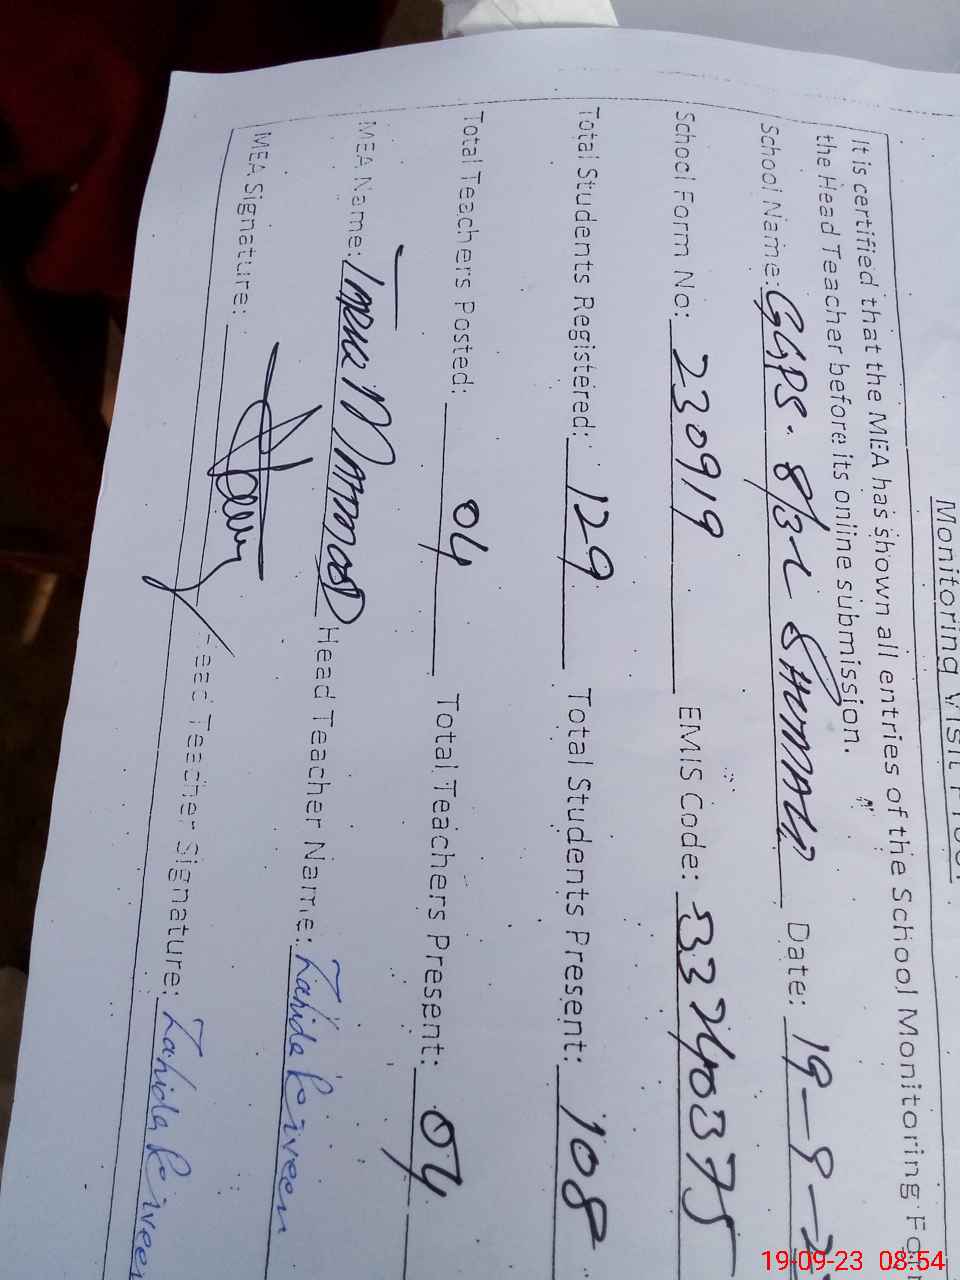 Monitoring Visit Proof
It is certified that the MEA has shown all entries of the School Monitoring For
the Head Teacher before its online submission.
School Name: GGPS. 8/3-L Date: 19-9-2
School Form No: 230919 EMIS Code: 33240375
Total Students Registered: 129 Total Students Present: 108
Total Teachers Posted: 04 Total Teachers Present: 04
MEA Name: Head Teacher Name: Zahida Perveen
MEA Signature: Head Teacher Signature: Zahida Perveen
19-09-23 08:54